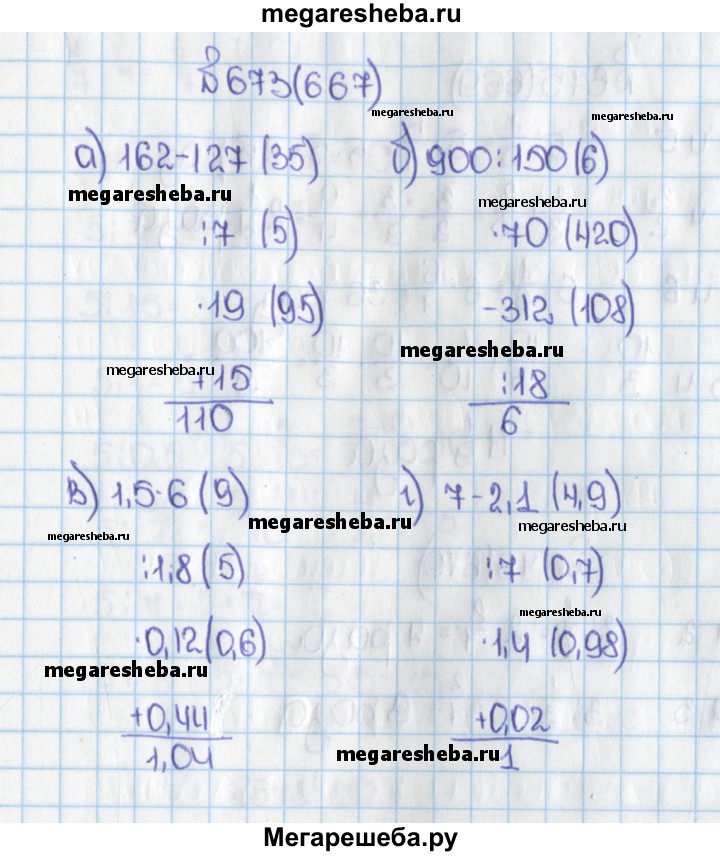 megaresheba.ru
№ 673(667)
megaresheba.ru megaresheba.ru
а) 162-127 (35) б) 900:150 (6)
megaresheba.ru megaresheba.ru
:7 (5) ·70 (420)
·19 (95) -312 (108)
megaresheba.ru megaresheba.ru
+15 :18
110 6
в) 1,5·6 (9) г) 7-2,1 (4,9)
megaresheba.ru megaresheba.ru megaresheba.ru
:1,8 (5) :7 (0,7)
megaresheba.ru
·0,12 (0,6) ·1,4 (0,98)
megaresheba.ru
+0,44 +0,02
1,04 1
megaresheba.ru
Мегарешеба.ру